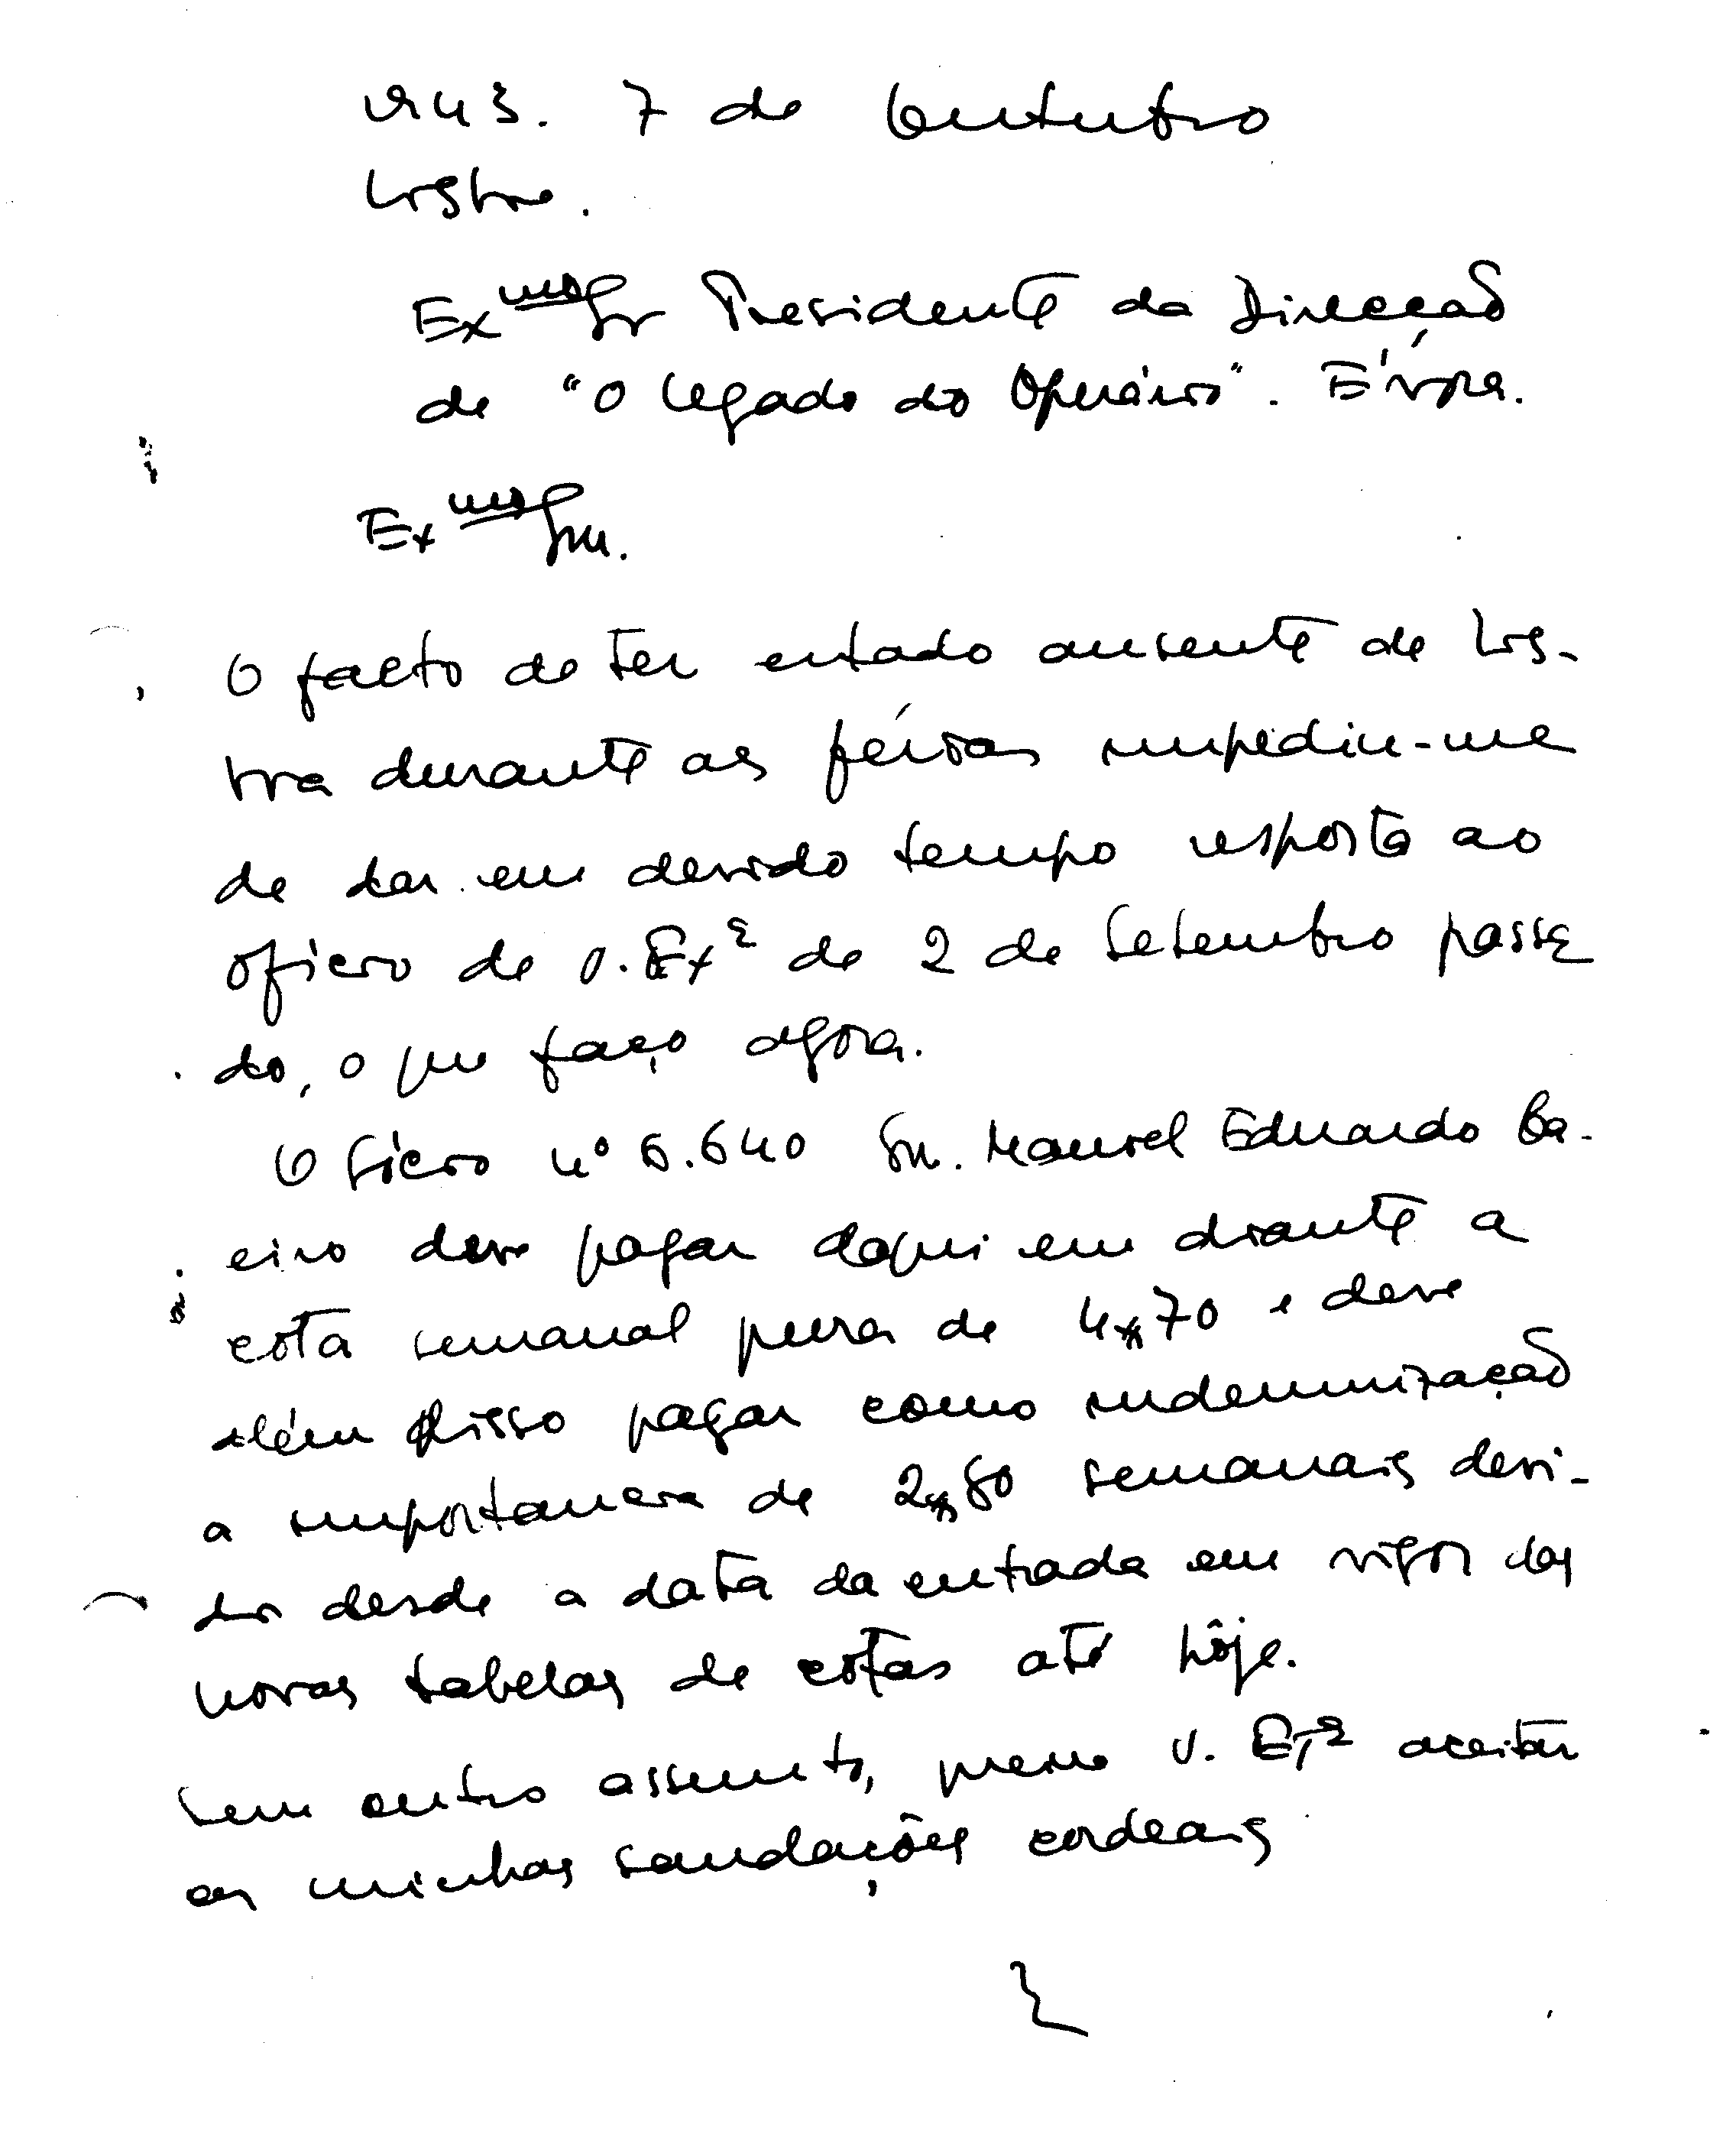 1943. 7 de Outubro
Lisboa.
Exmo Sr Presidente da Direcção
de "O Legado do Operário". Évora.
Exmo Snr.
O facto de ter estado ausente de Lis-
boa durante as férias impediu-me
de dar em devido tempo resposta ao
oficio de V. Exª de 2 de Setembro passa
do, o que faço agora.
O Sócio nº 6.640 Sr. Manuel Eduardo Ba-
eiro deve pagar daqui em diante a
cota semanal pura de 4$70 e deve
além disso pagar como indemnização
a importancia de 2$80 semanais devi-
dos desde a data da entrada em vigor das
novas tabelas de cotas até hôje.
Sem outro assunto, peço V. Exª aceitar
as minhas saudações cordeais